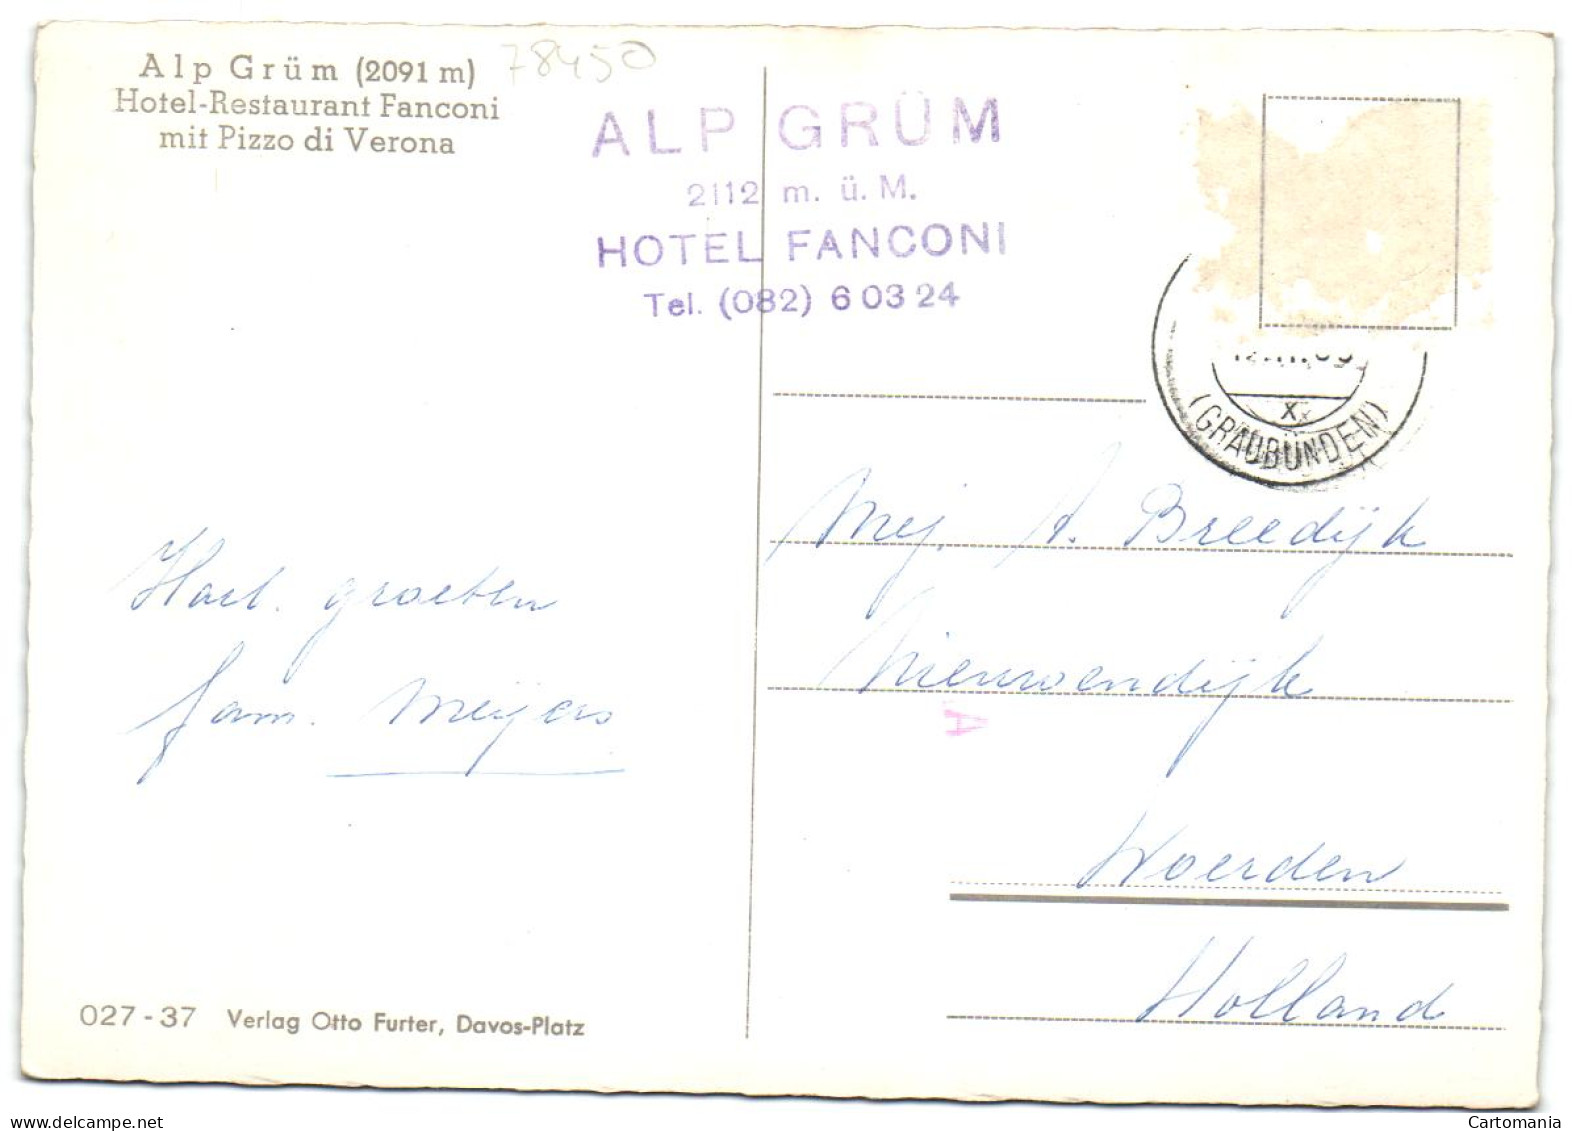 Alp Grüm (2091 m)
Hotel-Restaurant Fanconi
mit Pizzo di Verona
78450
ALP GRÜM
2112 m. ü. M.
HOTEL FANCONI
Tel. (082) 6 03 24
XX
(GRAUBÜNDEN)
Mej. A. Breedijk
Nieuwendijk
A
Woerden
Holland
Hart. groeten
fam. Meijers
027-37 Verlag Otto Furter, Davos-Platz
Cartomania